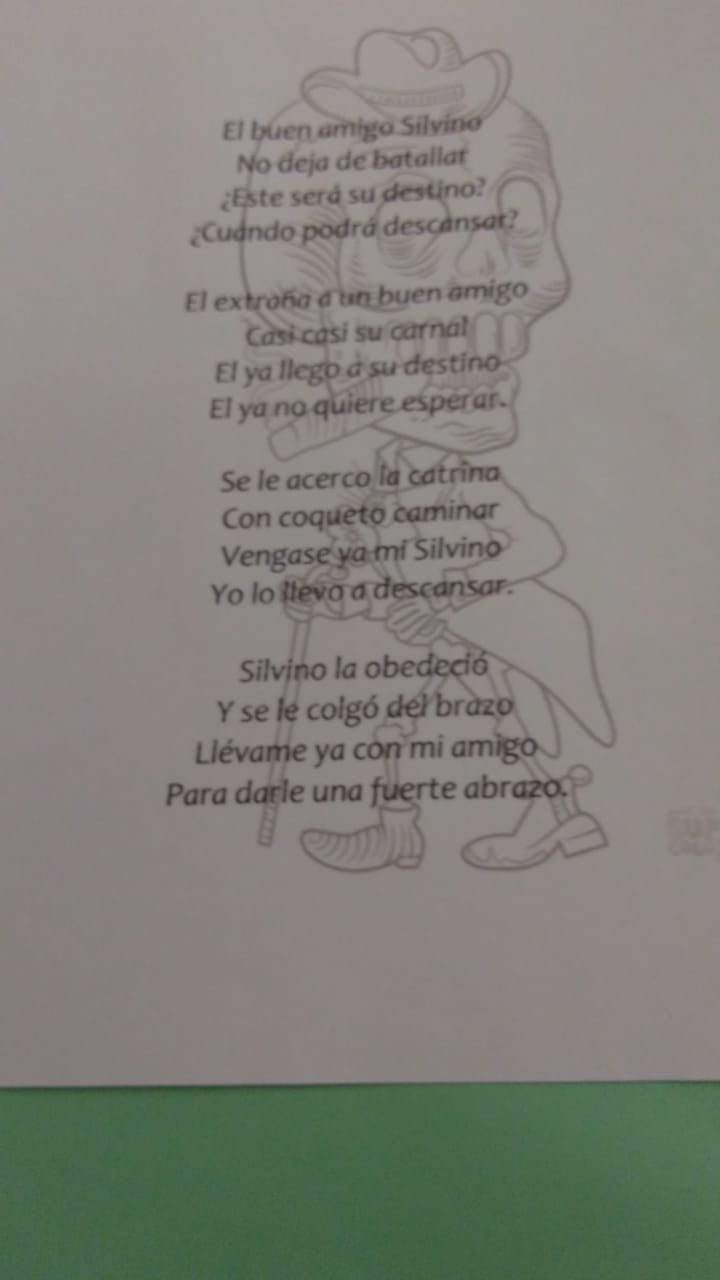 El buen amigo Silvino
No deja de batallar
¿Este será su destino?
¿Cuándo podrá descansar?
El extraña a un buen amigo
Casi casi su carnal
El ya llego a su destino
El ya no quiere esperar.
Se le acerco la catrina
Con coqueto caminar
Vengase ya mi Silvino
Yo lo llevo a descansar.
Silvino la obedeció
Y se le colgó del brazo
Llévame ya con mi amigo
Para darle una fuerte abrazo.